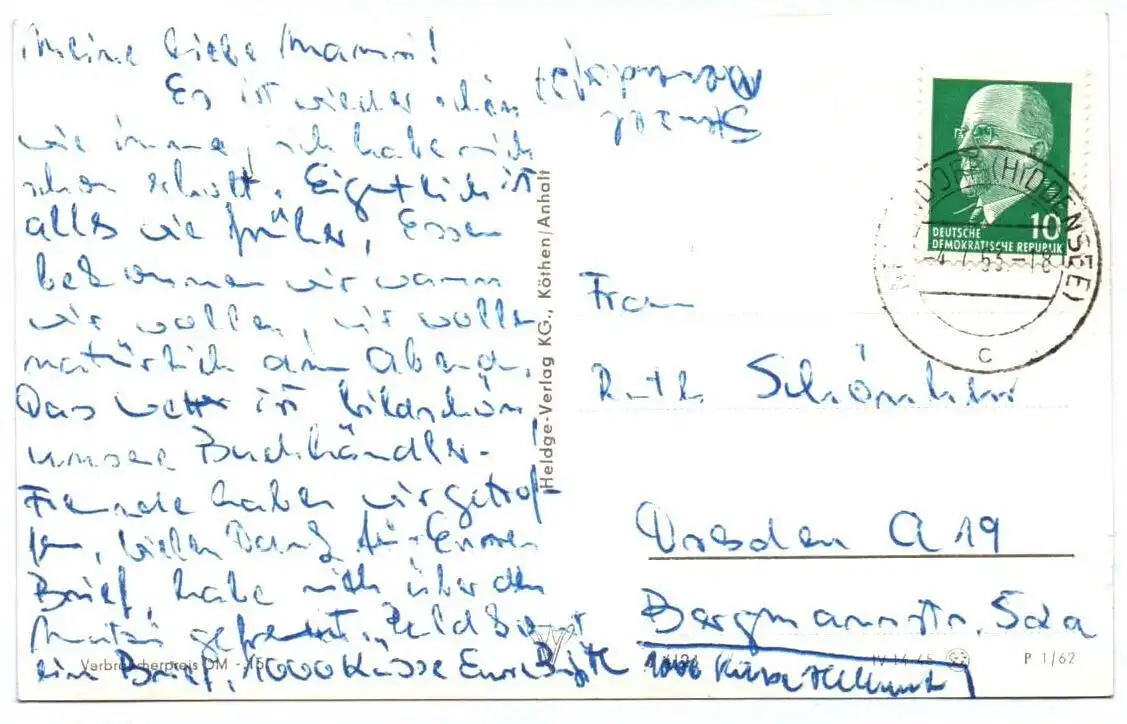 Meine liebe Mammi!
Es ist wieder schön
wie immer, ich habe mich
schon erholt. Eigentlich ist
alles wie früher, Essen
bekommen wir wann
wir wollen, wir wollen
natürlich am Abend.
Das Wetter ist bildschön!
unsere Buchhändler-
Freunde haben wir getrof-
fen, vielen Dank für Euren
Brief, habe mich über den
gefreut,
ein Brief, 1000 Küsse Eure Brigitte 1000 Küsse Hellmut
Verbraucherpreis DM -,15
Heldge-Verlag KG., Köthen/Anhalt
DEUTSCHE
DEMOKRATISCHE REPUBLIK
10
DORF (HIDDENSEE)
-4.7.63-18
c
Frau
Ruth
Dresden A 19
Bergmannstr. 52a
IV-14-45
P 1/62